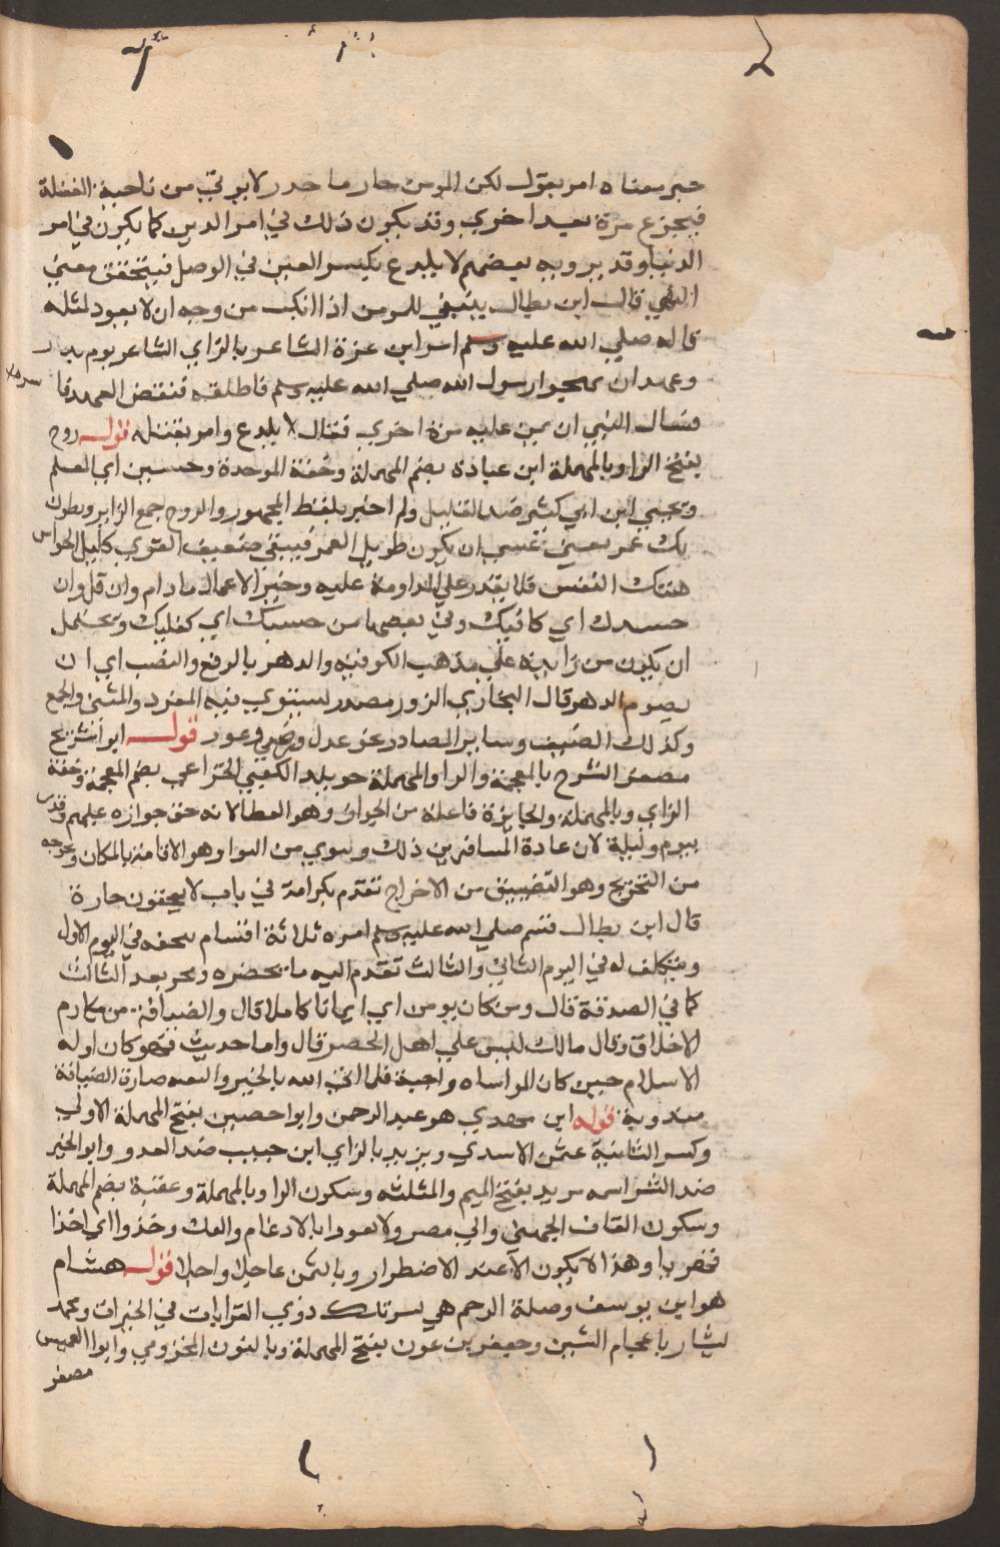 خبر معناه امر يقول ليكن المومن حازما حذرا لا يوتى من ناحية الغفلة
فيخدع مرة بعد اخرى وقد يكون ذلك في امر الدين كما يكون في امر
الدنيا وقد يرويه بعضهم لا يلدغ بكسر الغين في الوصل فيتحقق معنى
النهي قال ابن بطال ينبغي للمومن اذا انكب من وجه ان لا يعود لمثله
قاله صلي الله عليه وسلم اسر ابن عزة الشاعر بالزاي الشاعر يوم بدر
وعهد ان يهجوا رسول الله صلي الله عليه وسلم فاطلقه فنقض العهد
فسال النبي ان يمن عليه مرة اخري فقال لا يلدغ وامر بقتله قوله روح
بفتح الرا وبالمهملة ابن عبادة بضم المهملة وخفة الموحدة وحسين اي المعلم
ويحيى ابن ابي كثير ضد القليل ولم اخبر بلفظ المجهور والزور جمع الزاير ويطول
بك عمر يعني عسى ان يكون طويل العمر فيبقى ضعيف القوي كليل الحواس
نهتك النفس فلا يقدر على المداومة عليه وخير الاعمال ما دام وان قل وان
حسبك اي كافيك وفي بعضها من حسبك اي كفايك ويحتمل
ان يكون من زايدة على مذهب الكوفية والدهر بالرفع والنصب اي ان
يصوم الدهر قال البخاري الزور مصدر يستوي فيه المفرد والمثنى والجمع
وكذلك الضيف وساير المصادر نحو عدل ورضي وغور قوله ابو شريح
مصغر الشرح بالمعجمة والرا والمهملة خويلد الكعبي الخزاعي بضم المعجمة وخفة
الزاي وبالمهملة والجايزة فاعلة من الجواز وهو العطا لانه حق جوازه عليهم وقدر
بيوم وليلة لان عادة المسافرين ذلك ويثوي من الثوا وهو الاقامة بالمكان ويحرجه
من التحريج وهو التضييق من الاخراج تقدم بكرامة في باب لا يحقرن جارة
قال ابن بطال قسم صلي الله عليه وسلم امره ثلاثة اقسام يتحفه في اليوم الاول
ويتكلف له في اليوم الثاني والثالث تقدم اليه ما يحضره ويخير بعد الثالث
كما في الصدقة قال ومن كان يومن اي ايمانا كاملا قال والضيافة من مكارم
الاخلاق وقال مالك ليس على اهل الحضر قال واما حديث فهو كان اوله
الاسلام حين كان المواساه واجبة فلما اتى الله بالخير والسعة صارة الضيافة
مندوبة قوله ابن مهدي هو عبد الرحمن وابو احصين بفتح المهملة الاولى
وكسر الثانية عثمن الاسدي ويزيد بالزاي ابن حبيب ضد العدو وابو الخير
ضد الشر اسمه مرثد بفتح الميم والمثلثه وسكون الرا وبالمهملة وعقبة بضم المهملة
وسكون القاف الجهني والي مصر ولا يقرونا بالادغام والفك وخذوا اي اخذا
قهريا وهذا لا يكون الا عند الاضطرار وبالثمن عاجلا واجلا قوله هشام
هو ابن يوسف وصلة الرحم هي تشريك ذوي القرابات في الخيرات ومحمد
بشار باعجام الشين وجعفر بن عون بفتح المهملة وبالنون المخزومي وابوا العميس
مصغر